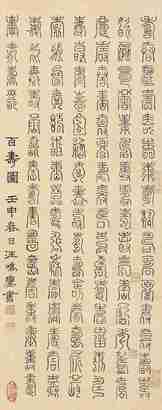 壽壽壽壽壽壽壽壽壽壽壽壽壽壽壽壽
壽壽壽壽壽壽壽壽壽壽壽壽壽壽壽壽
壽壽壽壽壽壽壽壽壽壽壽壽壽壽壽壽
壽壽壽壽壽壽壽壽壽壽壽壽壽壽壽壽
壽壽壽壽壽壽壽壽壽壽壽壽壽壽壽壽
壽壽壽壽壽壽壽壽壽壽壽壽壽壽壽壽
壽壽壽壽
百壽圖 壬申春日汪書